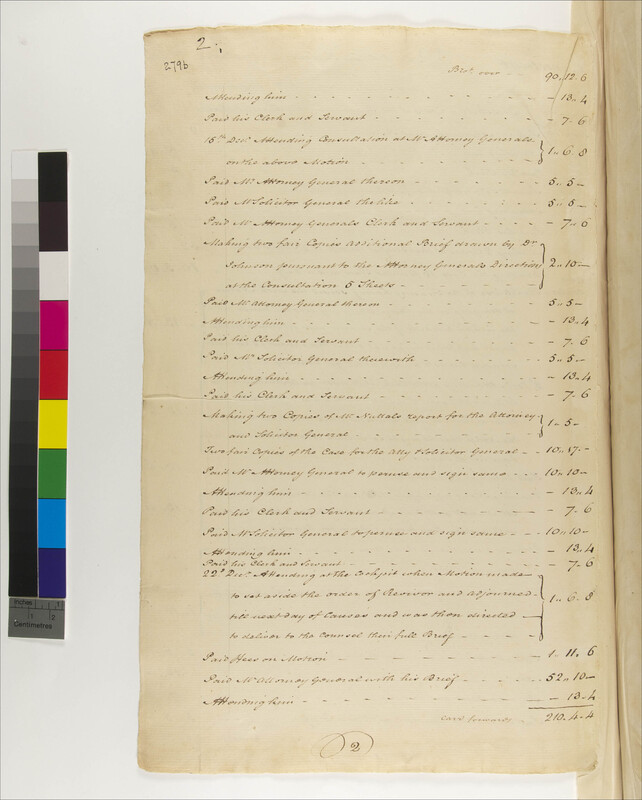 2.,
279b
Brot. over - - 90,, 12,, 6
Attending him - - - - - - - - - - 13,, 4
Paid his Clerk and Servant - - - - - - - 7,, 6
15th. Decr. Attending Consultation at Mr. Attorney Generals,
on the above Motion - - - - - - 1,, 6,, 8
Paid Mr. Attorney General thereon - - - - - 5,, 5 —
Paid Mr. Solicitor General the like - - - - - 5,, 5 —
Paid Mr. Attorney Generals Clerk and Servant - - - - 7,, 6
Making two fair Copies Additional Brief drawn by Dr.
Johnson pursuant to the Attorney Generals Direction
at the Consultation 5 Sheets - - - - - 2,, 10 —
Paid Mr. Attorney General thereon - - - - - 5,, 5 —
Attending him - - - - - - - - - - 13,, 4
Paid his Clerk and Servant - - - - - - 7,, 6
Paid Mr. Solicitor General therewith - - - - 5,, 5 —
Attending him - - - - - - - - - 13,, 4
Paid his Clerk and Servant - - - - - - 7,, 6
Making two Copies of Mr. Nuttals report for the Attorney
and Solicitor General - - - - - - 1,, 5 —
Two fair Copies of the Case for the Atty & Solicitor General - - 10,, 17,, -
Paid Mr. Attorney General to peruse and sign same - - - 10,, 10 —
Attending him - - - - - - - - - 13,, 4
Paid his Clerk and Servant - - - - - - 7,, 6
Paid Mr. Solicitor General to peruse and sign same - - - 10,, 10 —
Attending him - - - - - - - - - 13,, 4
Paid his Clerk and Servant - - - - - - 7,, 6
22d. Decr. Attending at the Cockpit when Motion made
to set aside the order of Revivor and Adjourned
till next day of Causes and was then directed
to deliver to the Counsel their full Brief - - - 1,, 6,, 8
Paid Fees on Motion - - - - - - - 1,, 11,, 6
Paid Mr. Attorney General with his Brief - - - - 52,, 10 —
Attending him - - - - - - - - - 13,, 4
card. forwards - - 210,, 4,, 4
2
Inches 1
1 2
Centimetres